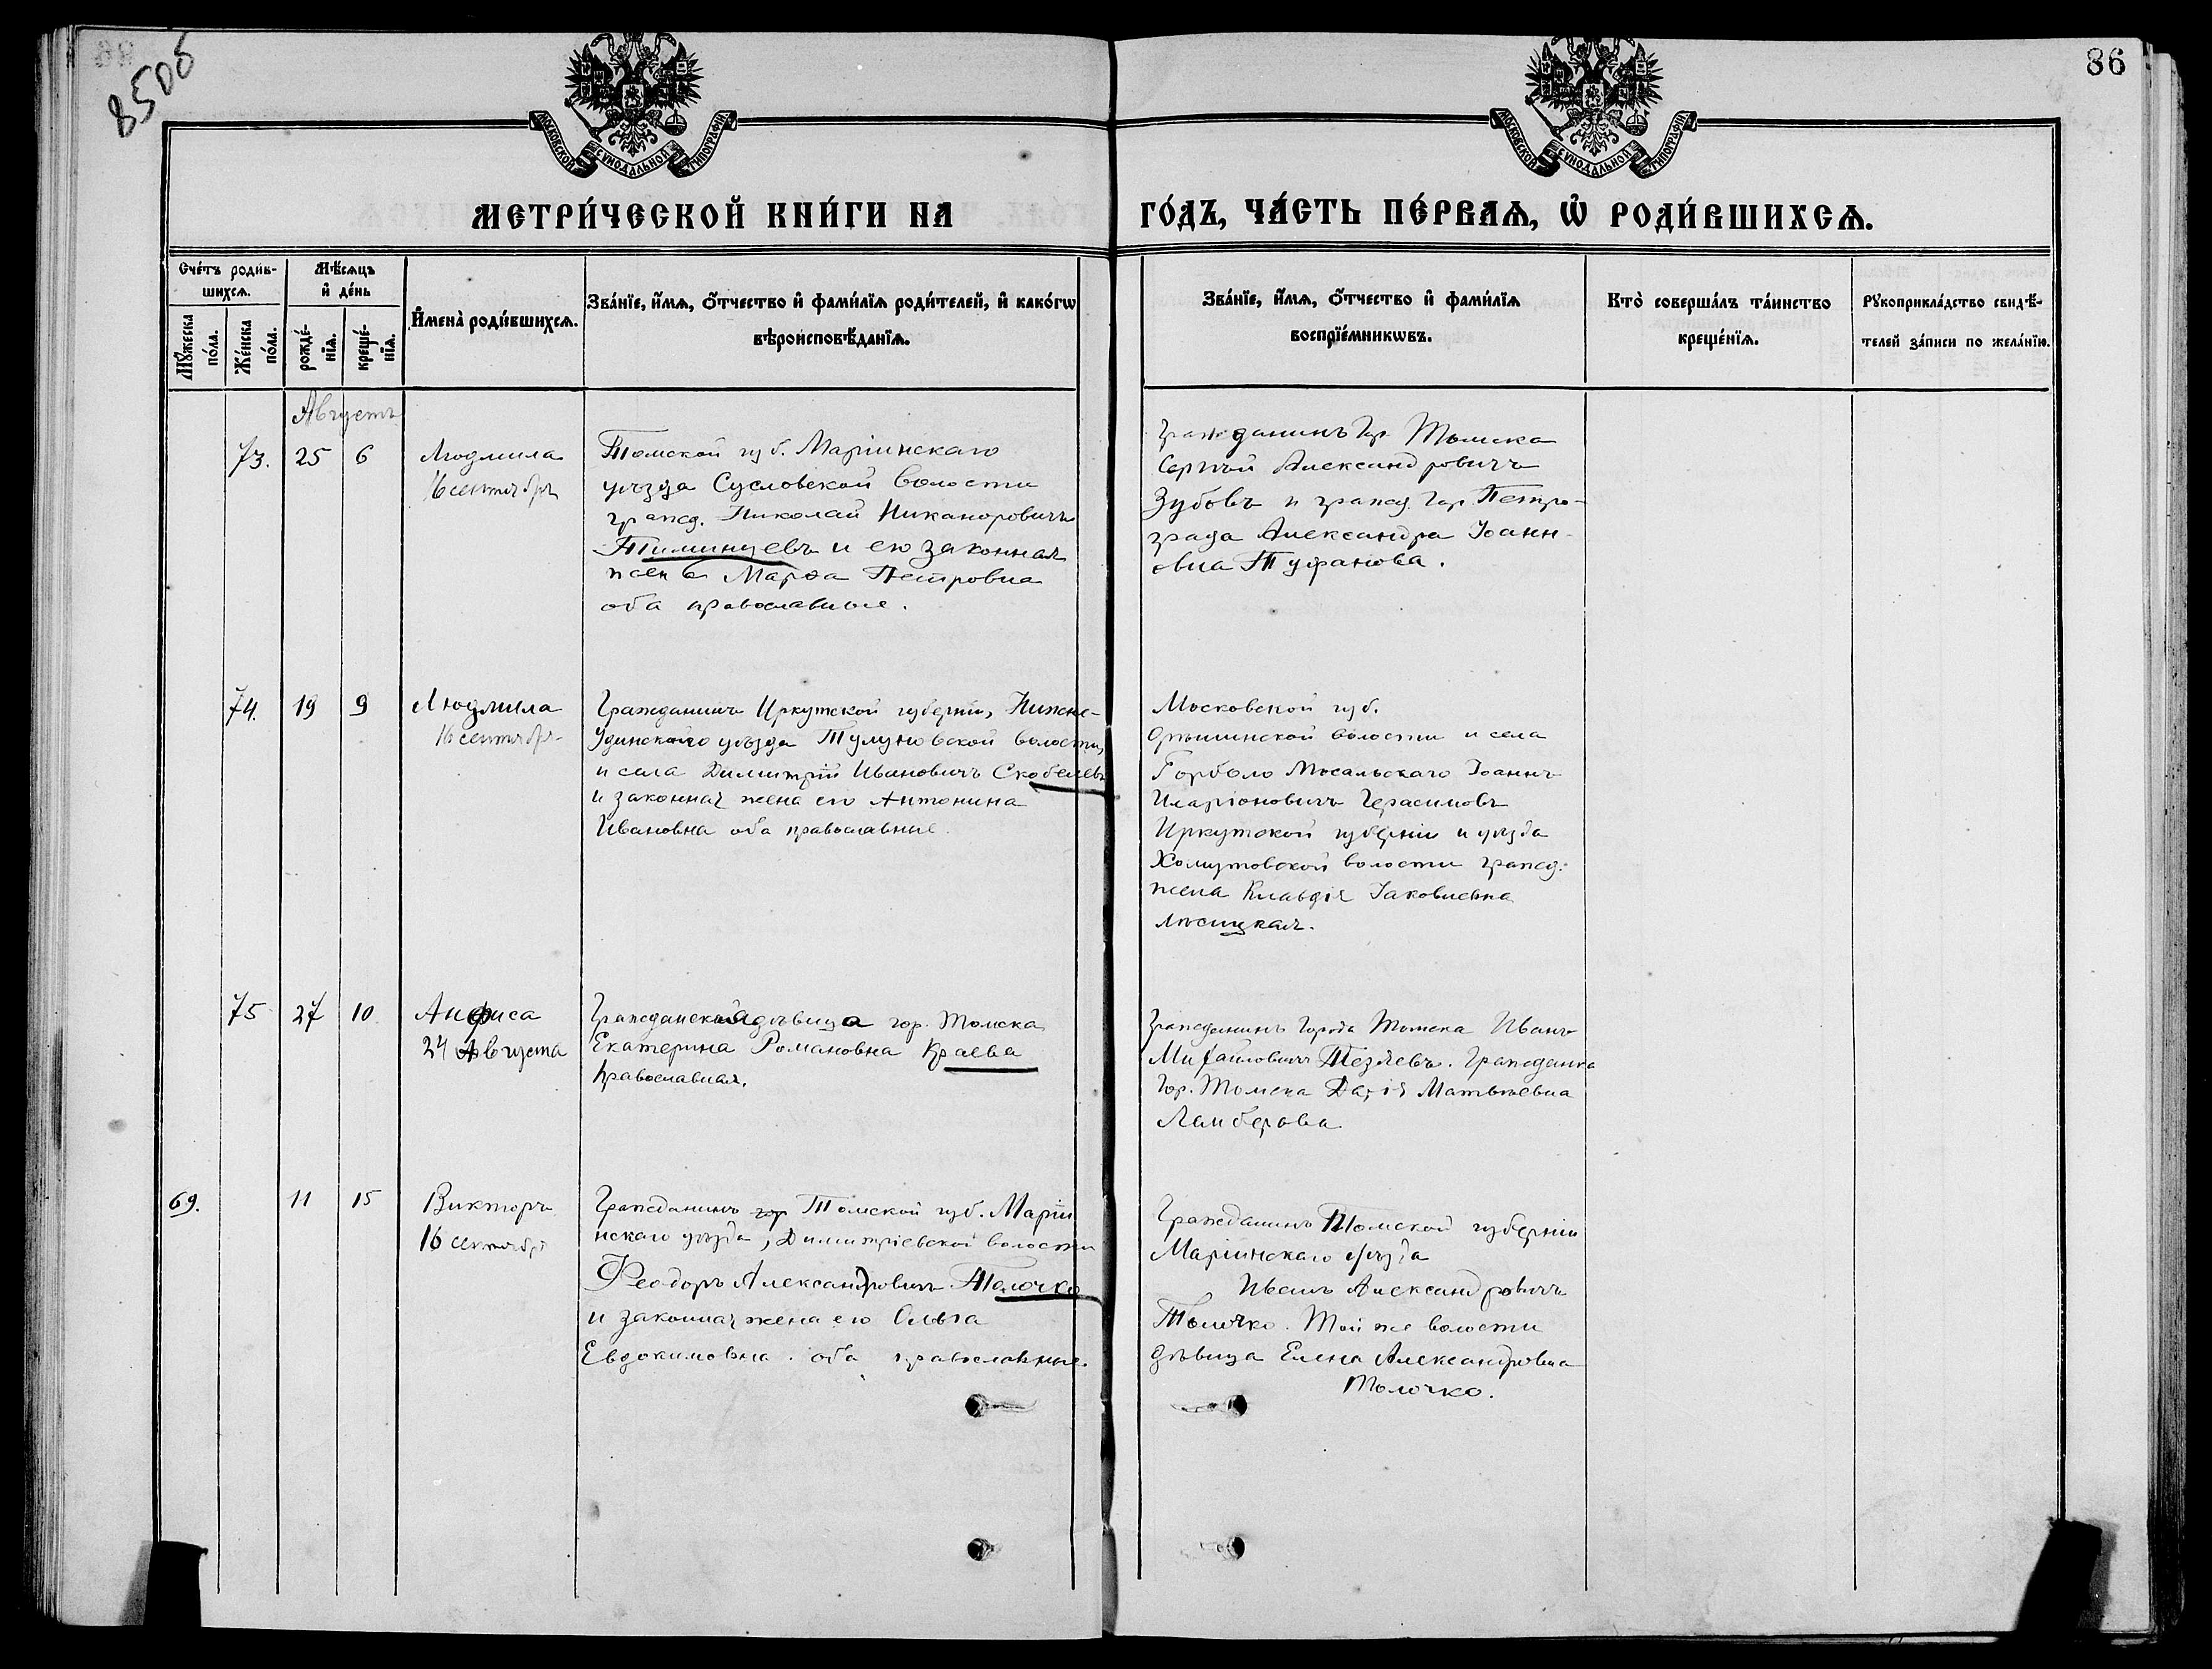 85об
86
МОСКОВСКОЙ СѴНОДАЛЬНОЙ ТИПОГРАФІИ
МОСКОВСКОЙ СѴНОДАЛЬНОЙ ТИПОГРАФІИ
МЕТРИ́ЧЕСКОЙ КНИ́ГИ НА
ГО́ДЪ, ЧА́СТЬ ПЕ́РВАѦ, Ѡ҆ РОДИ́ВШИХСѦ.
Сче́тъ роди́в-
шихсѧ.
Мꙋ́жеска
по́ла.
Же́нска
по́ла.
Мѣ́сѧцъ
и҆ де́нь
рожде́-
нїѧ.
креще́-
нїѧ.
И҆мена̀ роди́вшихсѧ.
Зва́нїе, и҆́мѧ, ѻ҆́тчество и҆ фами́лїѧ роди́телей, и҆ како́гѡ
вѣроисповѣ́данїѧ.
Зва́нїе, и҆́мѧ, ѻ҆́тчество и҆ фами́лїѧ
воспрїе́мникѡвъ.
Кто̀ соверша́лъ та́инство
креще́нїѧ.
Рꙋкоприкла́дство свидѣ́-
телей за́писи по жела́нїю.
Августъ
73. 25 6
Людмила
16 сентября
Томской губ. Маріинскаго
уѣзда Сусловской волости
гражд. Николай Никаноровичъ
Тиминцевъ и его законная
жена Марѳа Петровна
оба православные.
Гражданинъ гор. Томска
Сергѣй Александровичъ
Зубовъ и гражд. гор. Петро-
града Александра Іоанн-
овна Туфанова.
74. 19 9
Людмила
16 сентября
Гражданинъ Иркутской губерніи, Нижне-
Удинскаго уѣзда Тулуновской волости,
и села Димитрій Ивановичъ Скобелевъ
и законная жена его Антонина
Ивановна оба православные.
Московской губ.
волости и села
Іоаннъ
Иларіоновичъ Герасимовъ
Иркутской губерніи и уѣзда
Хомутовской волости гражд.
жена Клавдія Іаковлевна
75 27 10
Анфиса
24 Августа
Гражданская дѣвица гор. Томска
Екатерина Романовна Краева
православная.
Гражданинъ города Томска Иванъ
Михайловичъ Тезяевъ. Гражданка
гор. Томска Дарія Матвѣевна
Ламберова
69. 11 15
Викторъ
16 сентября
Гражданинъ гор Томской губ. Маріи
нскаго уѣзда, Димитріевской волости
Ѳеодоръ Александровичъ Толочко
и законная жена его Ольга
Евдокимовна. оба православные.
Гражданинъ Томской губерніи
Маріинскаго уѣзда
Иванъ Александровичъ
Толочко. Той же волости
дѣвица Елена Александровна
Толочко.